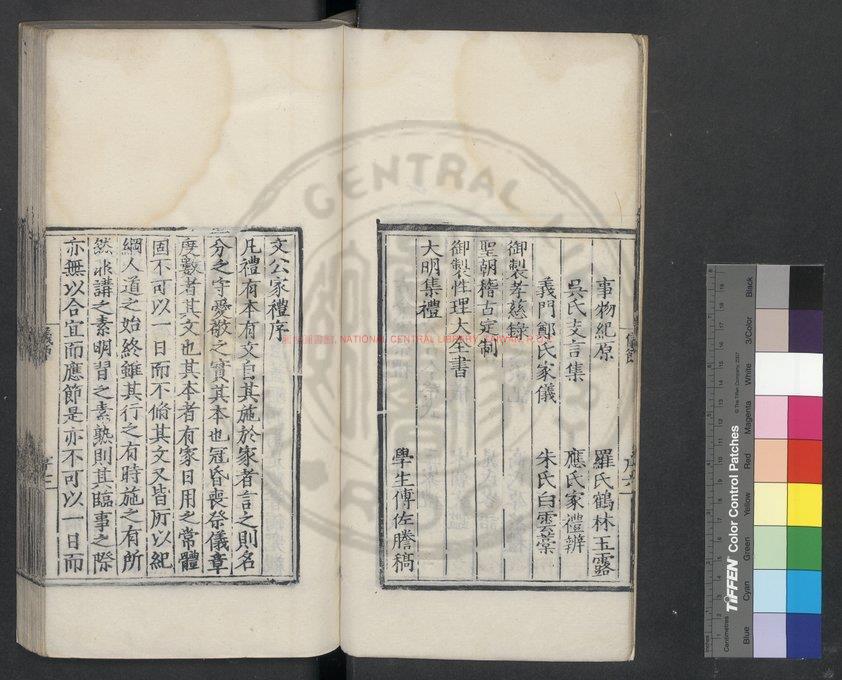 事物紀原　羅氏鶴林玉露
吳氏支言集　應氏家禮辨
義門鄭氏家儀　朱氏白雲藁
御製孝慈錄
聖朝稽古定制
御製性理大全書
大明集禮
學生傅佐謄稿
文公家禮序
凡禮有本有文自其施於家者言之則名
分之守愛敬之實其本也冠昏喪祭儀章
度數者其文也其本者有家日用之常體
固不可以一日而不脩其文又皆所以紀
綱人道之始終雖其行之有時施之有所
然非講之素明習之素熟則其臨事之際
亦無以合宜而應節是亦不可以一日而
NATIONAL CENTRAL LIBRARY, TAIWAN, R.O.C
CENTRAL
TIFFEN Color Control Patches
© The Tiffen Company, 2007
Centimetres
Inches
Blue
Cyan
Green
Yellow
Red
Magenta
White
3/Color
Black